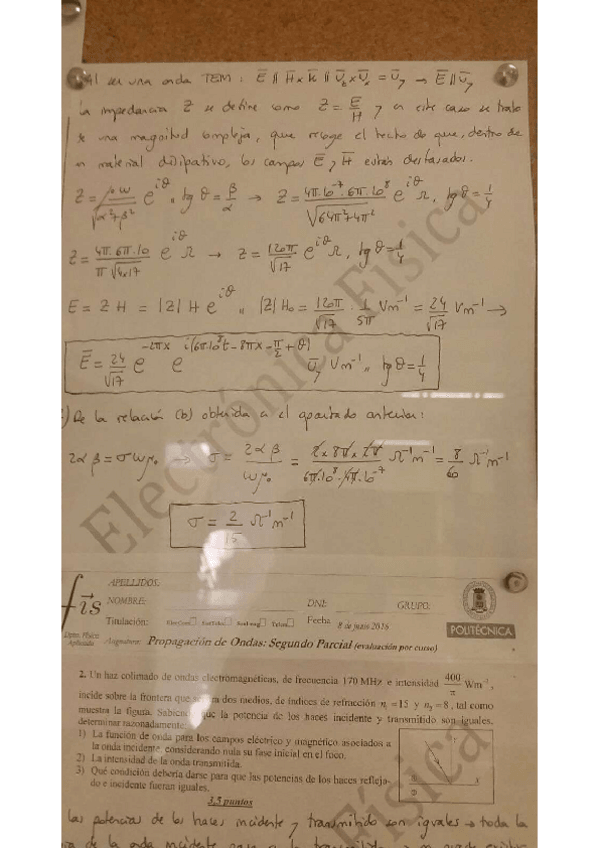 Al ser una onda TEM : E̅ ∥ H̅ x k̅ ∥ U̅z x U̅x = U̅y → E̅ ∥ U̅y
La impedancia Z se define como Z = E̅/H̅ y en este caso se trata
de una magnitud compleja, que recoge el hecho de que, dentro de
un material disipativo, los campos E̅ y H̅ están desfasados.
Z = μ₀ω/√(α²+β²) e^{iϑ} ,, tg ϑ = β/α → Z = 4π·10⁻⁷·6π·10⁸/√(64π²+4π²) e^{iϑ} Ω, tg ϑ = 1/4
Z = 4π·6π·10/(π√(4×17)) e^{iϑ} Ω → Z = 120π/√17 e^{iϑ} Ω, tg ϑ = 1/4
E = Z H = |Z| H e^{iϑ} ,, |Z| H₀ = 120π/√17 · 1/5π Vm⁻¹ = 24/√17 Vm⁻¹ →
E̅ = 24/√17 e^{-2πx} e^{i(6π·10⁸t - 8πx - π/2 + ϑ)} U̅y Vm⁻¹ ,, tg ϑ = 1/4
c) De la relación (b) obtenida en el apartado anterior:
2αβ = σωμ₀ → σ = 2αβ/ωμ₀ = 2×8π×2π/(6π·10⁸·4π·10⁻⁷) Ω⁻¹m⁻¹ = 8/60 Ω⁻¹m⁻¹
σ = 2/15 Ω⁻¹m⁻¹
fis
Dpto. Física
Aplicada
APELLIDOS:
NOMBRE: DNI: GRUPO:
Titulación: Fecha 8 de junio 2016
POLITÉCNICA
Asignatura: Propagación de Ondas: Segundo Parcial (evaluación por curso)
2. Un haz colimado de ondas electromagnéticas, de frecuencia 170 MHz e intensidad 400/π Wm⁻¹,
incide sobre la frontera que separa dos medios, de índices de refracción n₁=15 y n₂=8, tal como
muestra la figura. Sabiendo que la potencia de los haces incidente y transmitido son iguales,
determinar razonadamente:
1) La función de onda para los campos eléctrico y magnético asociados a
la onda incidente, considerando nula su fase inicial en el foco.
2) La intensidad de la onda transmitida.
3) Qué condición debería darse para que las potencias de los haces refleja-
do e incidente fueran iguales.
3,5 puntos
x
Las potencias de los haces incidente y transmitido son iguales → toda la
de la onda incidente
Electrónica Física